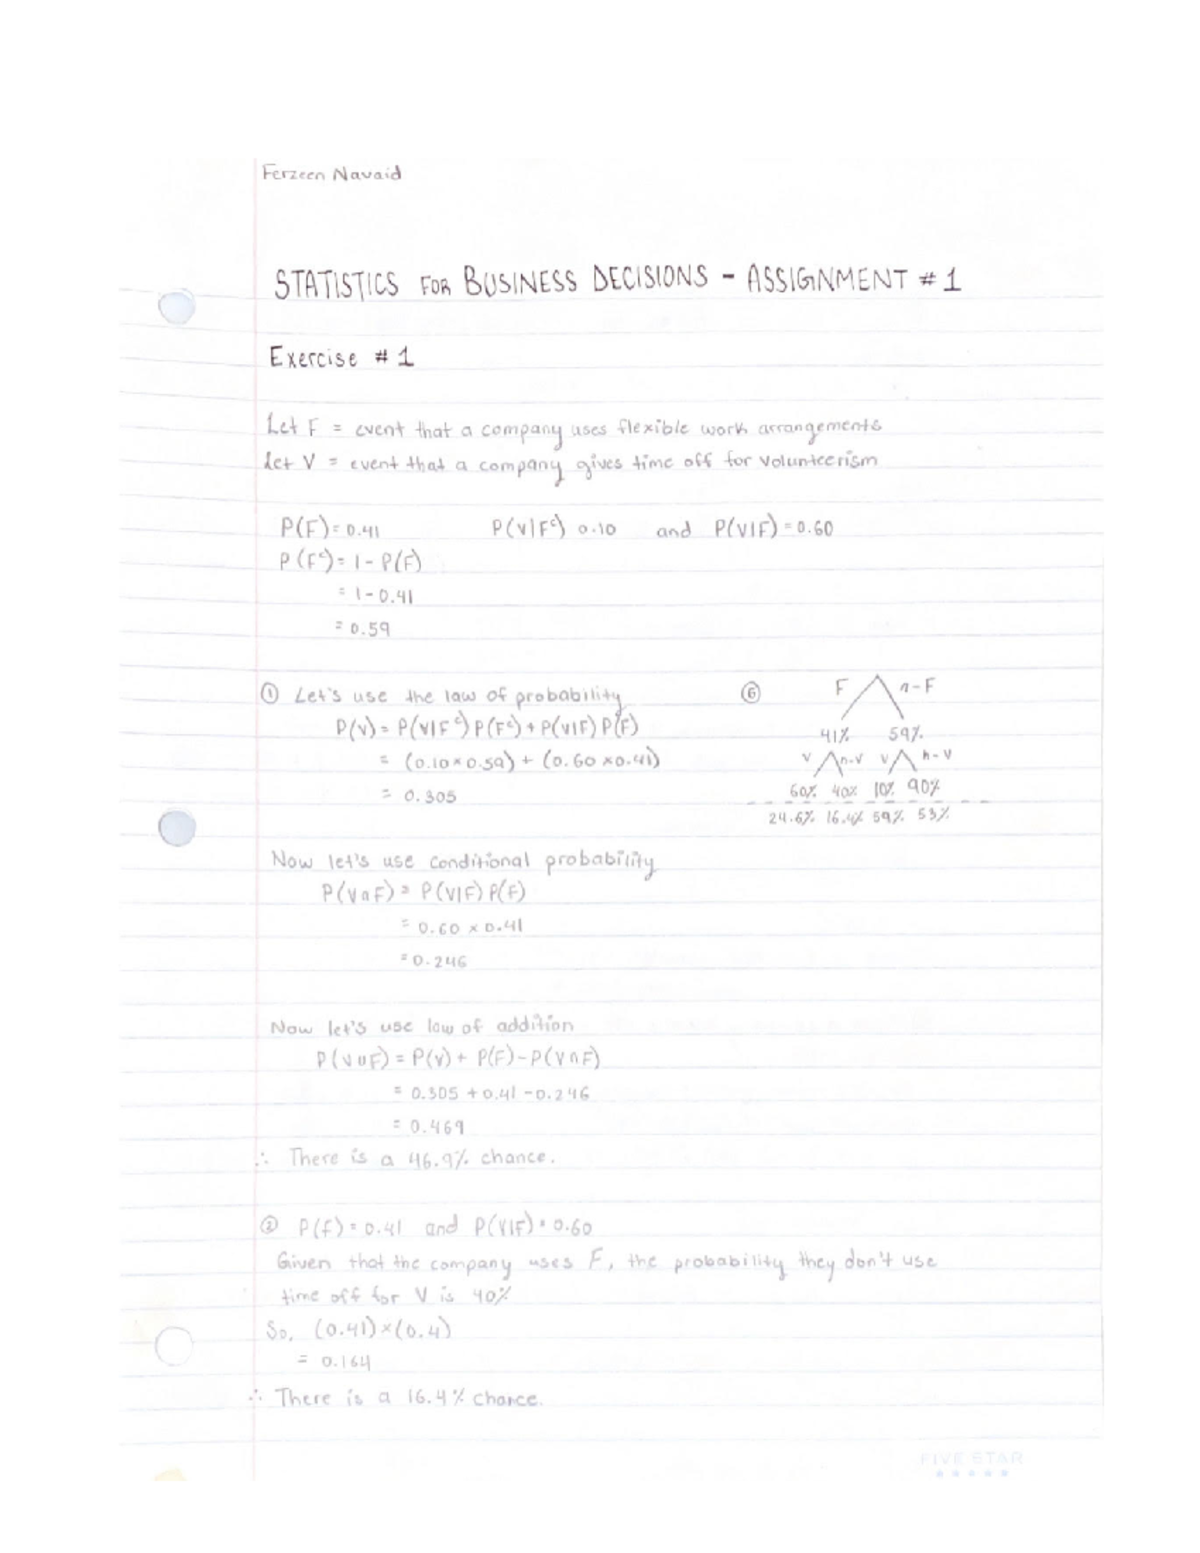 Ferzeen Navaid
STATISTICS FOR BUSINESS DECISIONS - ASSIGNMENT # 1
Exercise # 1
Let F = event that a company uses flexible work arrangements
Let V = event that a company gives time off for volunteerism
P(F) = 0.41 P(V|Fᶜ) 0.10 and P(V|F) = 0.60
P(Fᶜ) = 1 - P(F)
= 1 - 0.41
= 0.59
① Let's use the law of probability
P(V) = P(V|Fᶜ) P(Fᶜ) + P(V|F) P(F)
= (0.10 × 0.59) + (0.60 × 0.41)
= 0.305
⑥ F n-F
41% 59%
V n-V V n-V
60% 40% 10% 90%
24.6% 16.4% 59% 53%
Now let's use conditional probability
P(V∩F) = P(V|F) P(F)
= 0.60 × 0.41
= 0.246
Now let's use law of addition
P(V∪F) = P(V) + P(F) - P(V∩F)
= 0.305 + 0.41 - 0.246
= 0.469
∴ There is a 46.9% chance.
② P(F) = 0.41 and P(V|F) = 0.60
Given that the company uses F, the probability they don't use
time off for V is 40%
So, (0.41) × (0.4)
= 0.164
∴ There is a 16.4% chance.
FIVE STAR